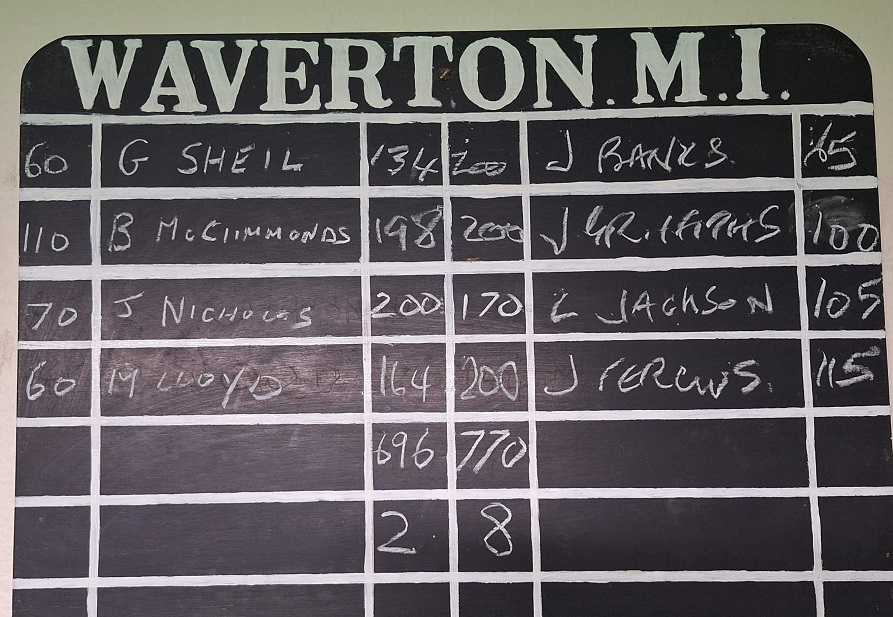 WAVERTON. M.I.
60 G SHEIL 134 200 J BANKS 65
110 B McCLIMMONDS 198 200 J GRIFFITHS 100
70 J NICHOLLS 200 170 L JACKSON 105
60 M LLOYD 164 200 J 115
696 770
2 8